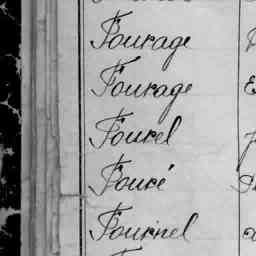 Fourage
Fourage
Fourel
Fouré
Fournel